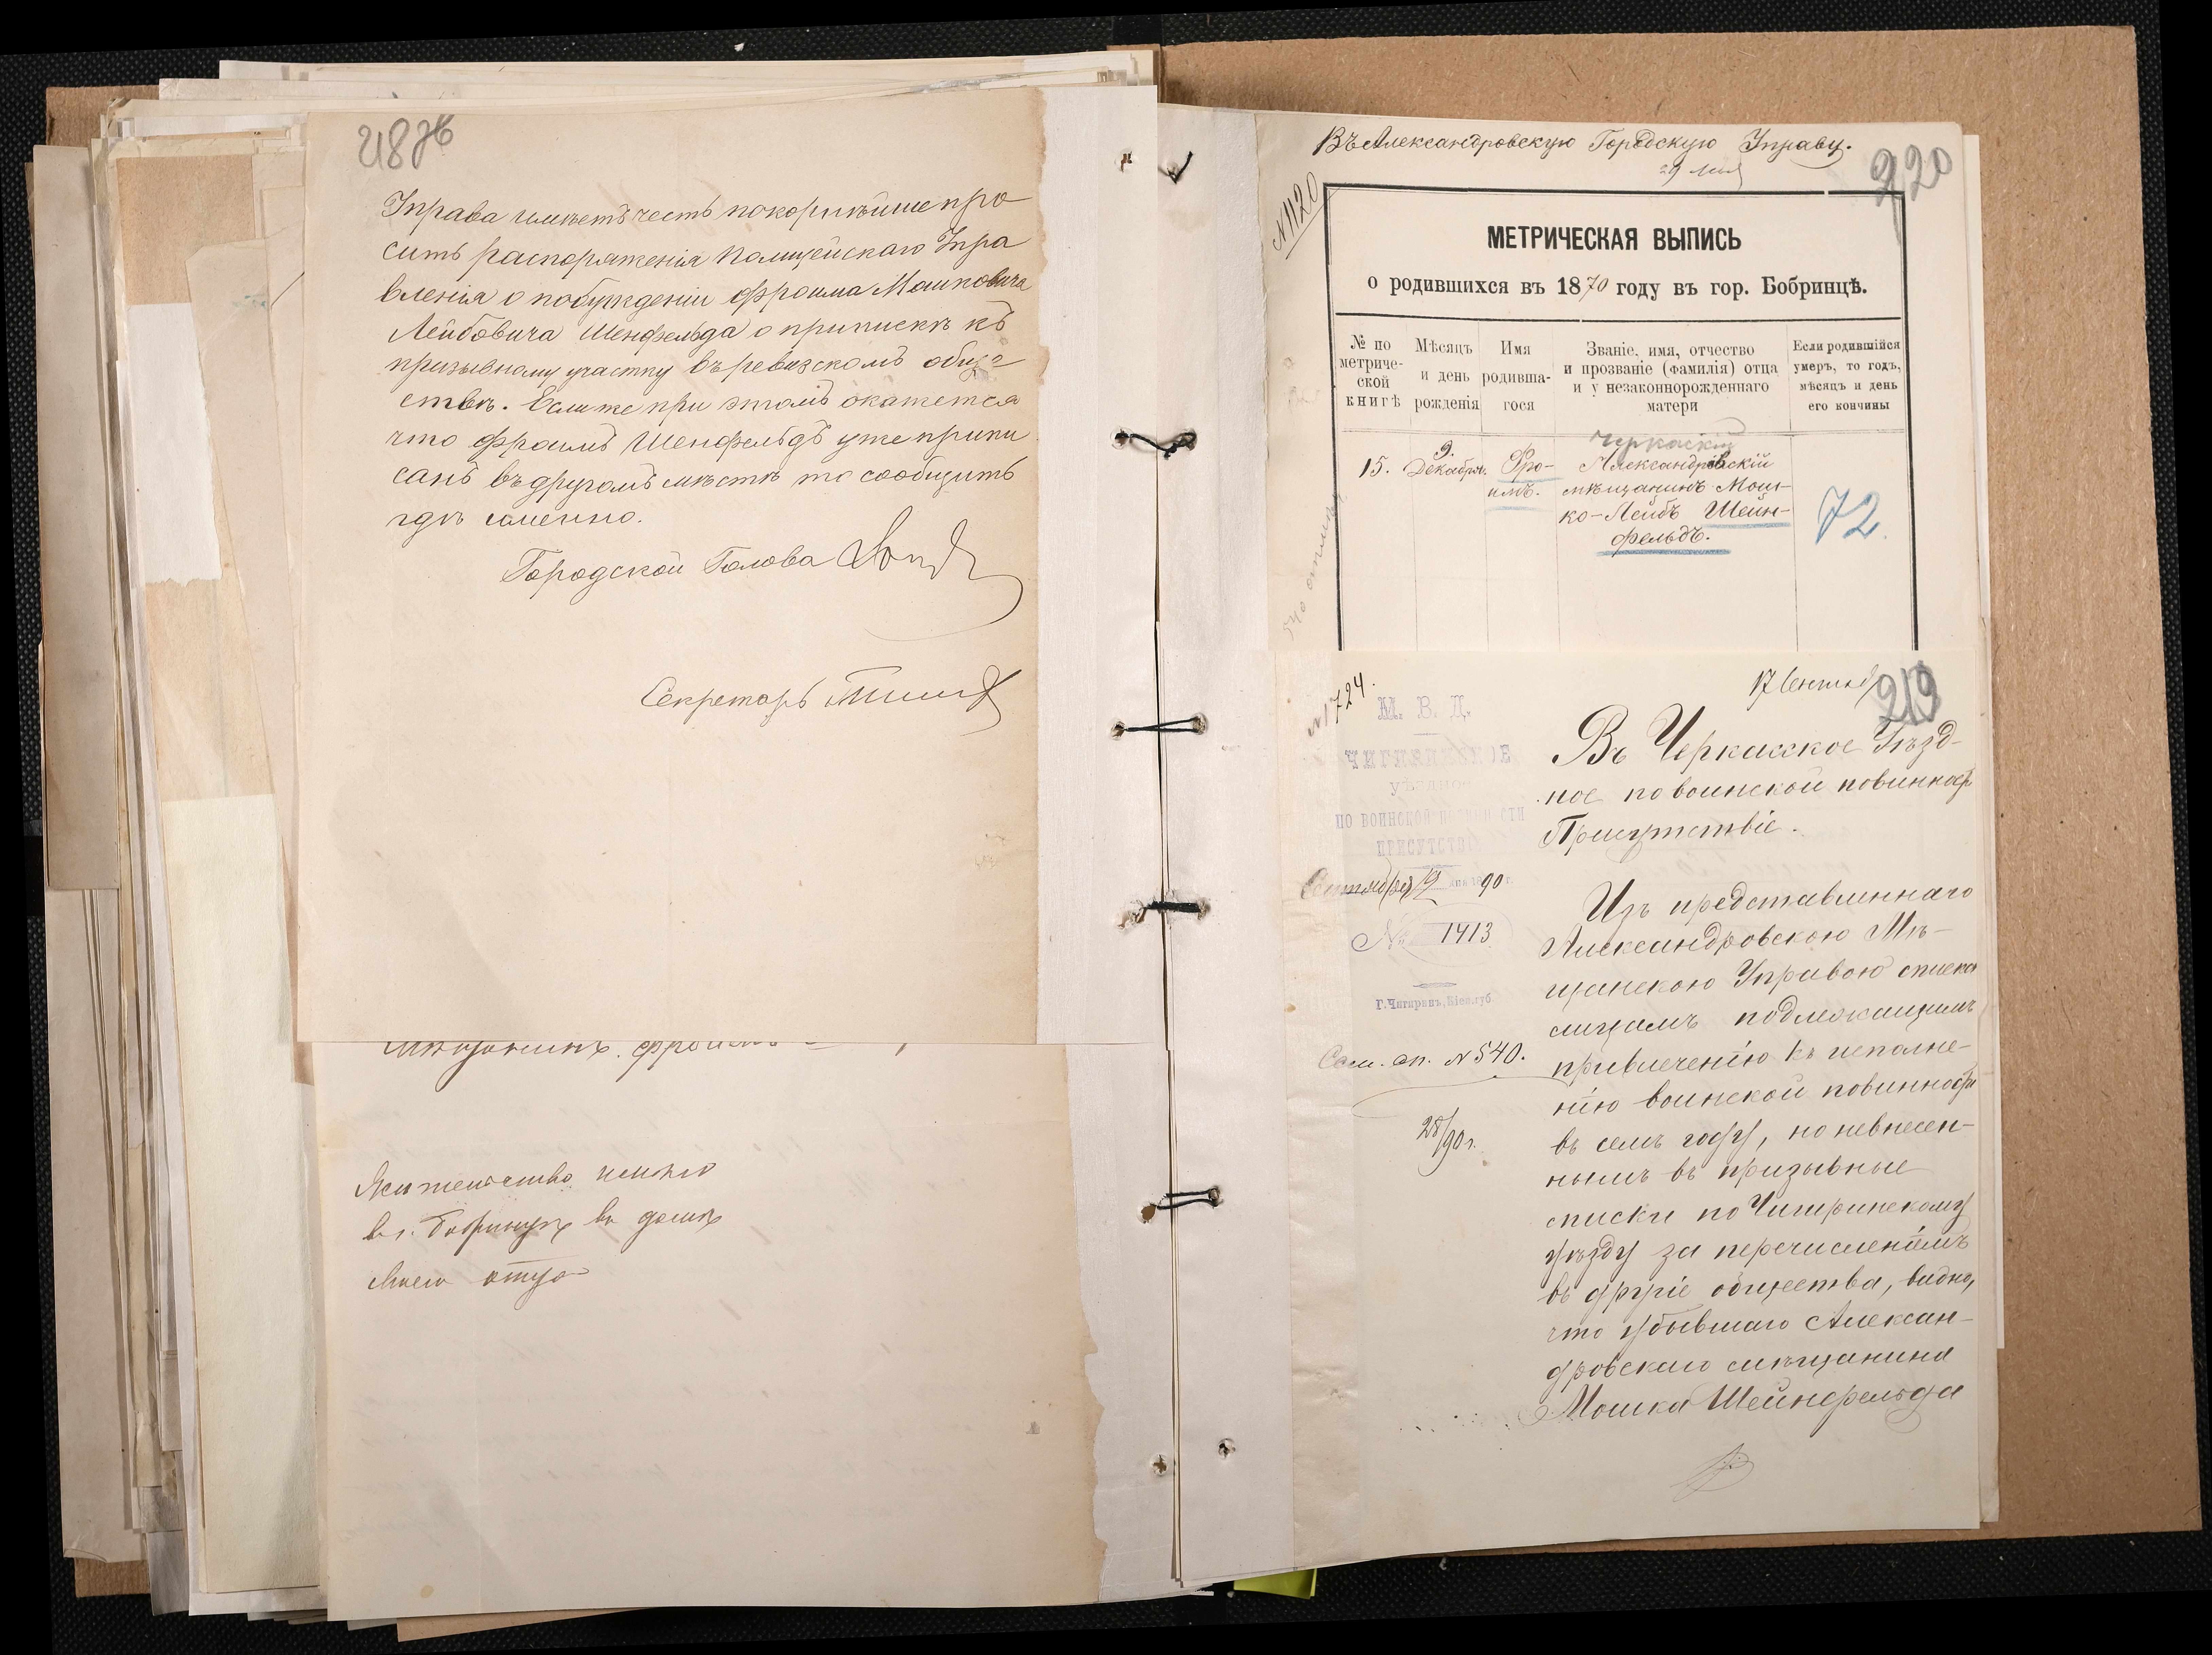 218об
Управа имѣетъ честь покорнѣйше про
сить распоряженія Полицейскаго Упра
вленія о побужденіи Фроима Мошковича
Лейбовича Шенфельда о припискѣ къ
призывному участку въ ревизскомъ общ-
ествѣ. Если же при этомъ окажется
что Фроимъ Шенфельдъ уже припи
санъ въ другомъ мѣстѣ то сообщить
гдѣ именно.
Городской Голова
Секретарь
мѣщанинъ. Фроимъ
Жительство имѣю
въ г. Бобринцѣ въ домѣ
моего отца
Въ Александровскую Городскую Управу.
29 мая
220
№1120
МЕТРИЧЕСКАЯ ВЫПИСЬ
о родившихся въ 1870 году въ гор. Бобринцѣ.
№ по метриче-ской книгѣ
Мѣсяцъ и день рожденія
Имя родивша-гося
Званіе, имя, отчество и прозваніе (фамилія) отца и у незаконнорожденнаго матери
Если родившійся умеръ, то годъ, мѣсяцъ и день его кончины
Черкаскій
15.
9. Декабря.
Фро-
имъ.
Александрівскій
мѣщанинъ Мош-
ко-Лейбъ Шейн-
фельдъ.
72.
№1724.
17 Сентяб
219
М. В. Д.
ЧИГИРИНСКОЕ
УѢЗДНОЕ
ПО ВОИНСКОЙ ПОВИННОСТИ
ПРИСУТСТВІЕ
Сентября 12 дня 1890 г.
№ 1413
Г. Чигиринъ, Кіев. губ.
Сем. сп. №540.
28/90 г.
Въ Черкасское Уѣзд-
ное по воинской повинност
Присутствіе.
Изъ представленнаго
Александровскою Мѣ-
щанскою Управою списка
лицамъ подлежащимъ
привлеченію къ исполне-
нію воинской повинности
въ семъ году, но невнесен-
нымъ въ призывные
списки по Чигиринскому
уѣзду за перечисленіемъ
въ другіе общества, видно,
что убывшаго Алексан-
дровскаго мѣщанина
Мошка Шейнфельда